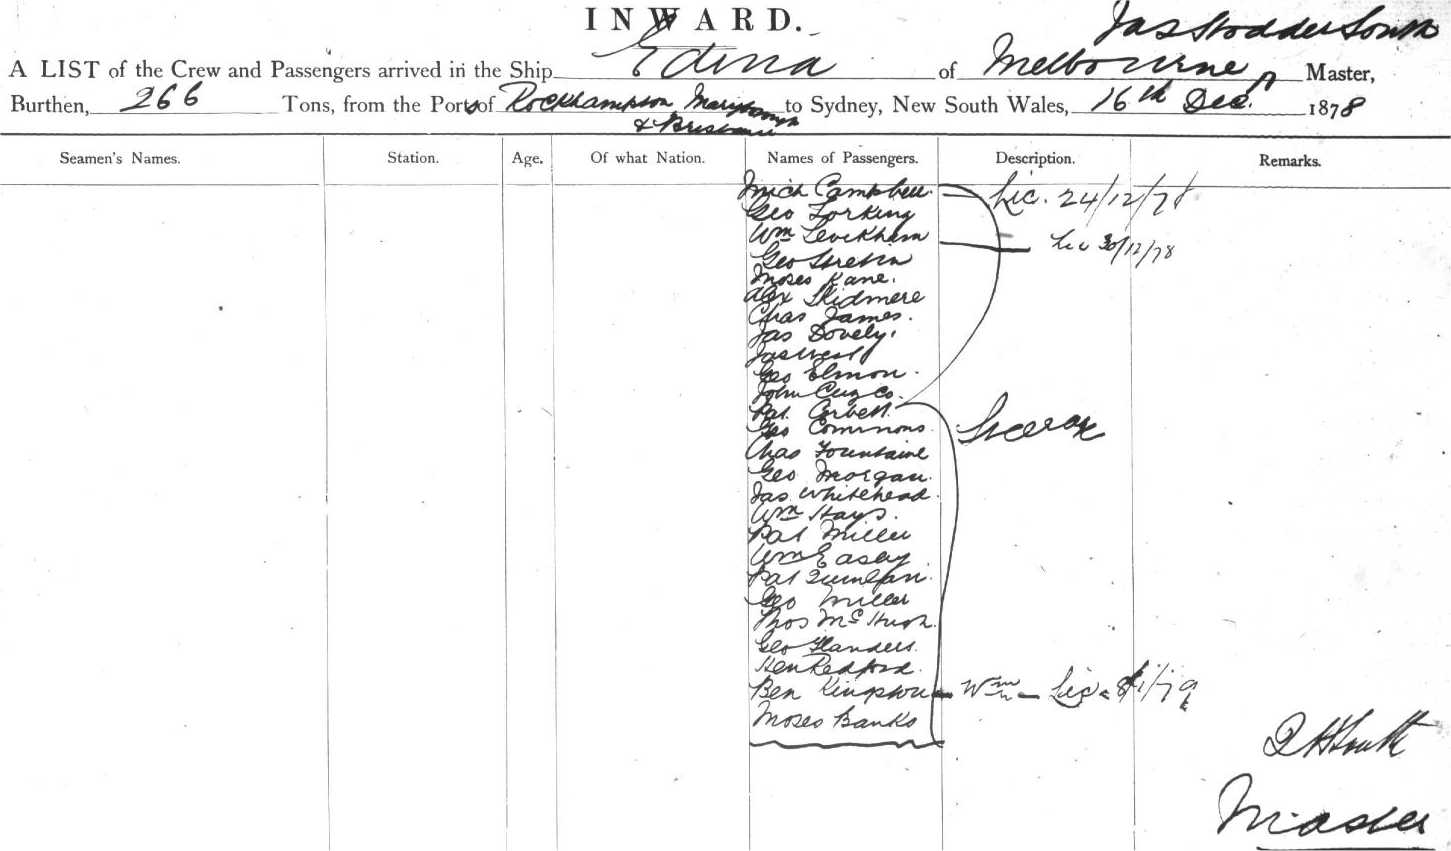 INWARD.
Jas Stodder South
A LIST of the Crew and Passengers arrived in the Ship Edina of Melbourne, Master,
Burthen, 266 Tons, from the Ports of Rockhampson Maryborough to Sydney, New South Wales, 16th Decr 1878
& Brisbane
Seamen's Names. Station. Age. Of what Nation. Names of Passengers. Description. Remarks.
Mich Campbell. Lic. 24/12/78
Geo Torking
Wm Levickham Lic 30/12/78
Geo
Moses Kane.
Alex Skidmere
Chas James.
Jas Dovely.
Jas West
Geo Elmon.
John
Pat. Corbett.
Geo Commons. Steerage
Chas Fountaine
Geo Morgan.
Jas Whitehead.
Wm Hays.
Pat Miller
Wm Easby
Pat Quinlan.
Geo Miller
Thos McHugh.
Geo Flanders.
Hen Redford.
Ben Kingston - Wm - Lic. 8/1/79
Moses Banks
South
Master